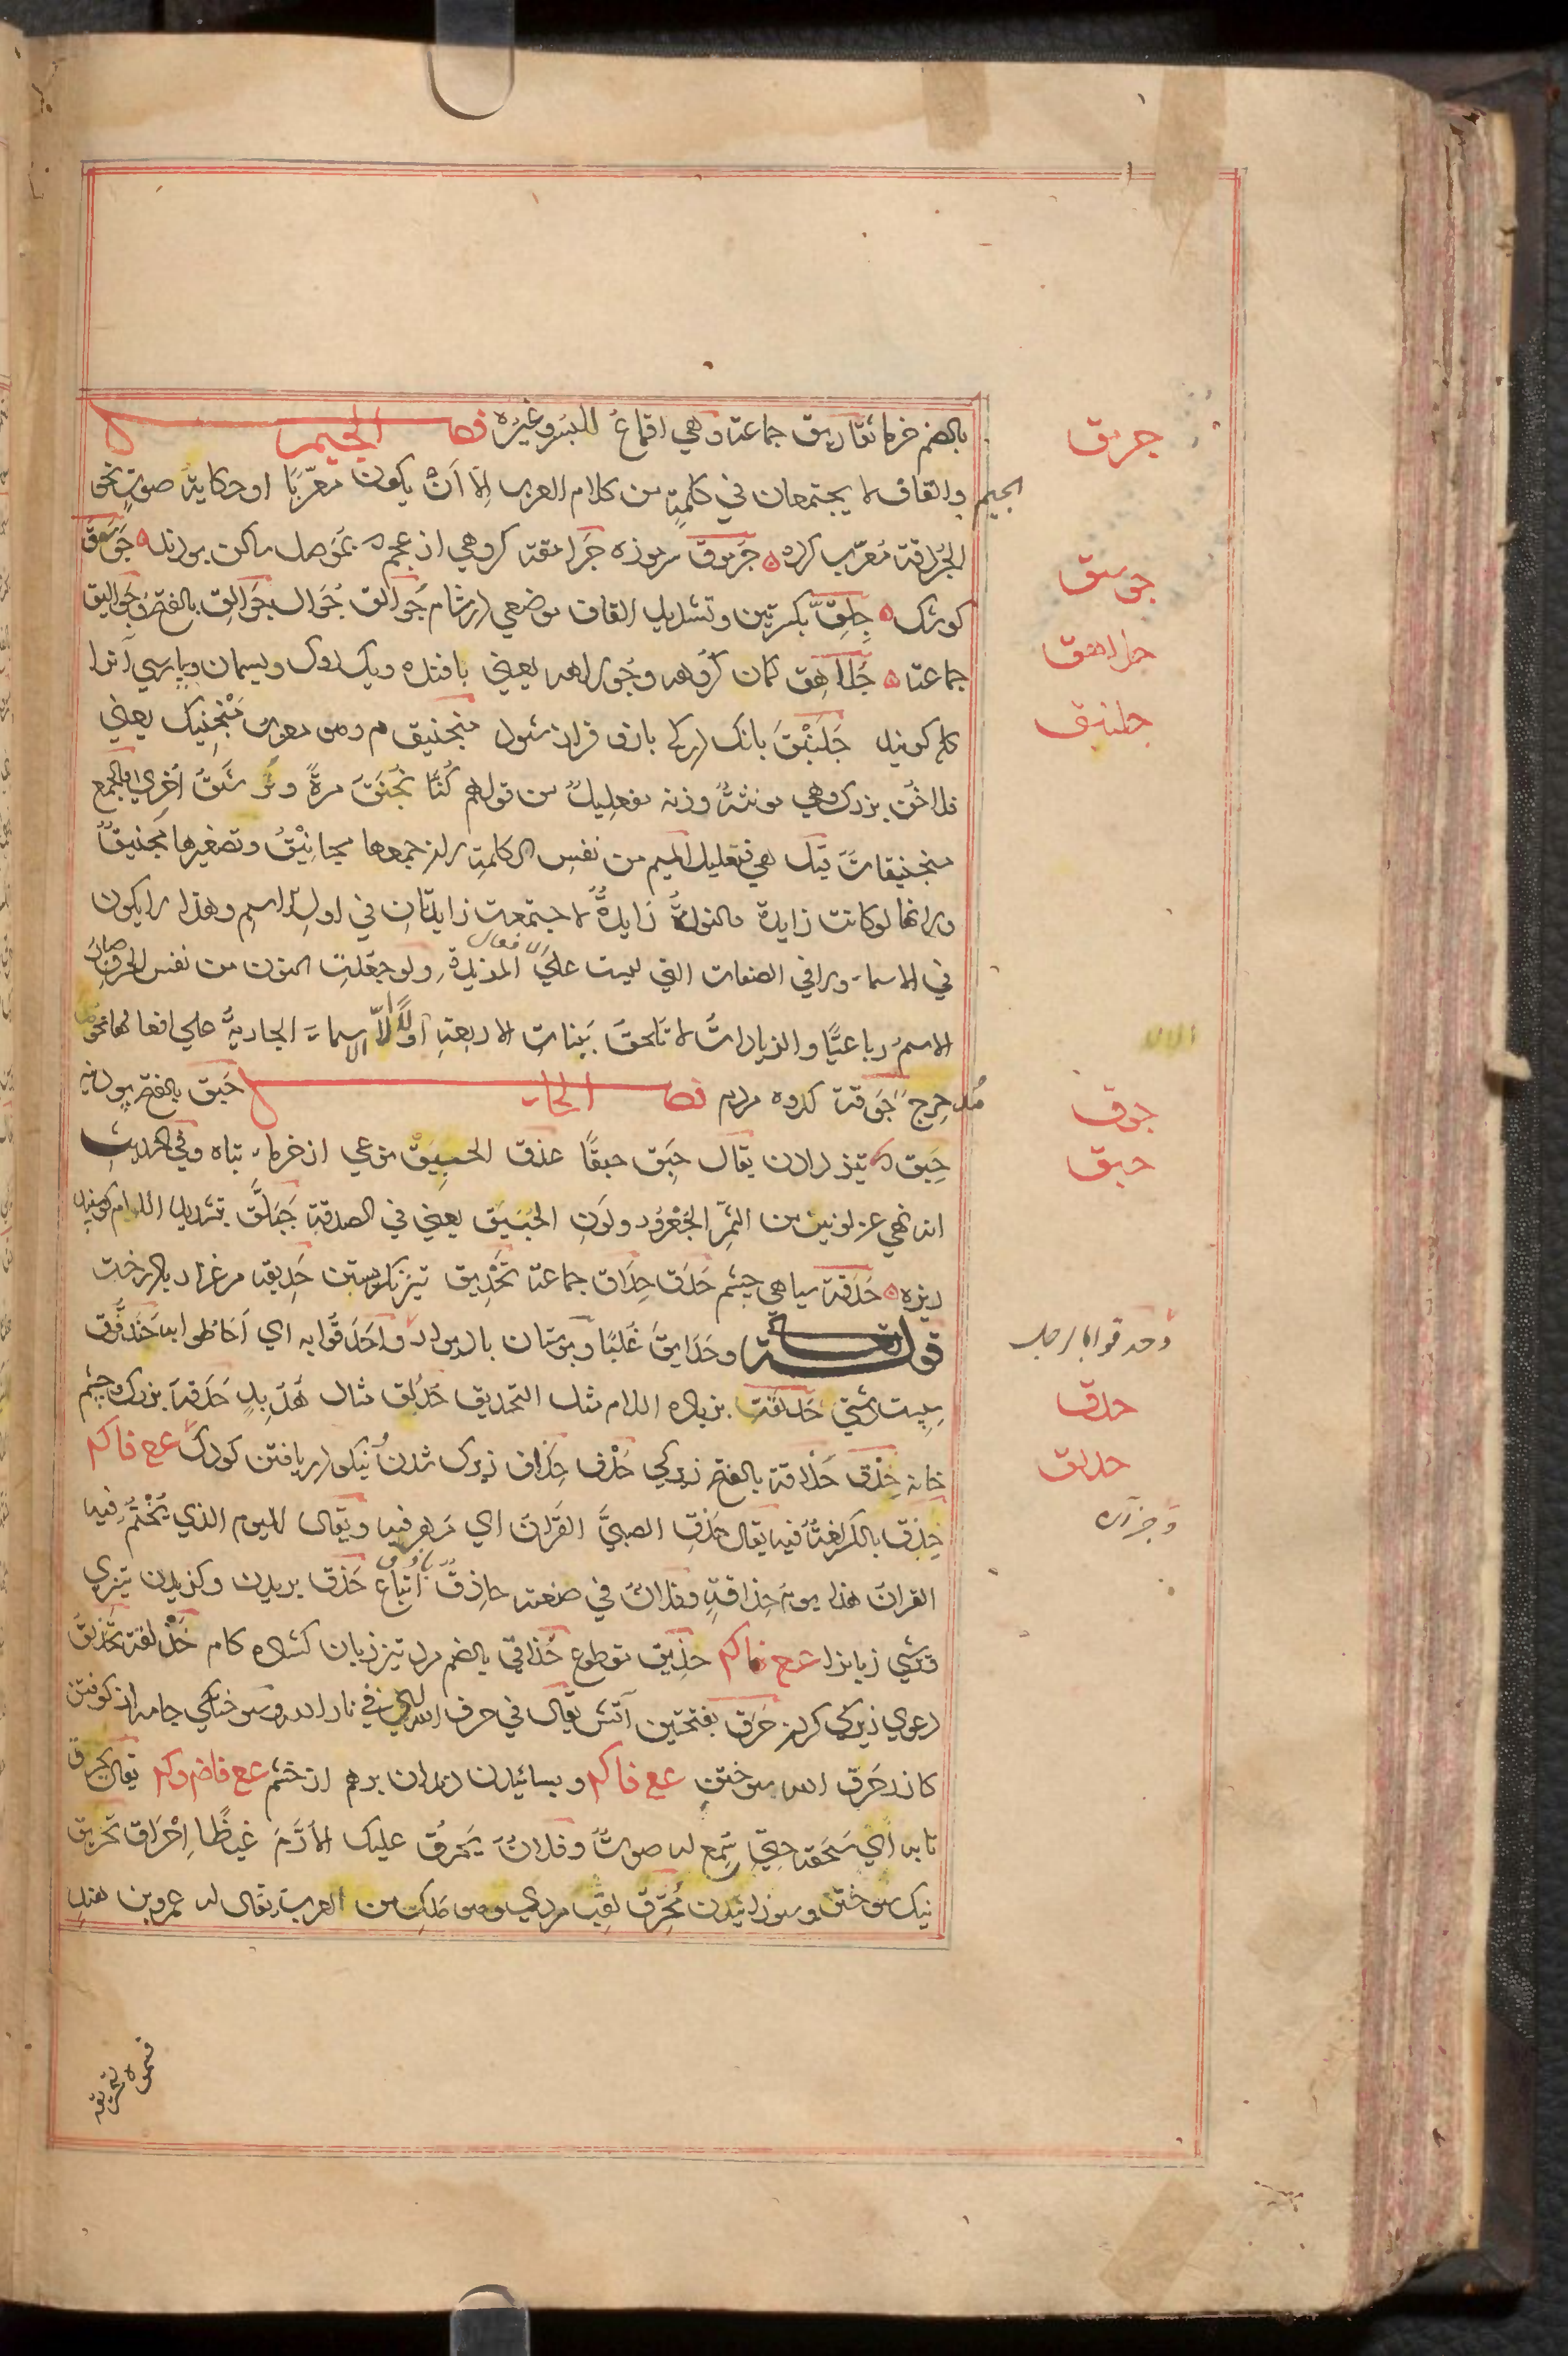 بالضم خرما ثفاريق جماعة وهي اقماع البسر وغيره فصل الجيم
الجيم والقاف لا يجتمعان في كلمةٍ من كلام العرب الّا اَنْ يكون معرّبًا او حكاية صوتٍ نحو
الجَردقة مُعرّب كرده جَرموق سرموزه جَرامقه كروهي از عجم كه بمَوصل ساكن بودند جَوسَق
كوشك جِلِقّ بكسرتين وتشديد القاف موضعي در شام جُوالق جُوال جَوالِق بالفتح وجَواليق
جماعة جُلاهِق كمان كُروهه وجُوكاهه يعني بافنده ويك دوك ريسمان وبپارسي آنرا
كويند جَلَنْبَق بانك در كه باز و فراز شود منجنيق م وهو معرّب مَنْجنيك يعني
فلاخُن بزرك وهي مونثةٌ وزنه مفعليلٌ من قولهم كُنّا نُجنَق مرةً ونُرشَقُ اُخري والجمع
منجنيقات قيل هي فنعليل الميم من نفس الكلمة لان جمعها مجانيْقُ وتصغيرها مُجينيقٌ
ولانها لو كانت زايدة والنونُ زايدةٌ لاجتمعت زايدتان في اول الاسم وهذا لا يكون
في الاسماء ولا في الصفات التي ليست علي الافعال المزيدة ولو جعلت النون من نفس الحرف صار
الاسم رباعيًّا والزيادات لا تلحق بَنات الاربعة اوّلًا الّا الاسماء الجارية علي افعالها نحو
مُدحرج جَوقة كروه مردم فصل الحاء حَبق بالفتح پودنه
حَبِق تيز دادن يقال حبَق حبقًا عذق الحُبَيْق نوعي از خرماء تباه وفي الحديث
انه نهي عن لونين من التمر الجُعْرُور ولَونِ الحُبَيق يعني في الصدقة حَبَلَّق بتشديد اللام كوسفند
ريزه حَدَقة سياهي چشم حَدَق حِداق جماعة تَحْدِيق تيز نكريستن حَدِيقه مرغزار با درخت
قوله تعالى وحَدايِقَ غُلْبًا وبوستان با ديوار واَحْدَقُوا به اي اَحَاطُوا به حَندَقُوق
سپست دشتي حَدلَقَة بزياده اللام مثل التحديق حُدَلِق مثال هُدَبِدٍ حَدَقة بزرك وچشم
خانه حِذْق حَذاقة بالفتح زيركي حَذْق حِذاق زيرك شدن ونيكو دريافتن كودك ع ع فا كم
حِذق بالكسر لغةٌ فيه يقال حَذق الصبيُّ القُرآنَ اي مَهر فيه ويقال لليوم الذي يُخْتمُ فيه
القران هذا يوم حِذاقةٍ وفلانٌ في صنعته حاذِقٌ باذِقٌ اِتباع حَذق بريدن وكزيدن تيزي
ترشي زبانرا ع ع فا كم حذِيق مقطوع حُذاقي بالضم مرد تيز زبان كشاده كام حَذْلقة تَحَذْلُق
دعوي زيركي كردن حَرَق بفتحتين آتش يقال في حرق الله اي في نار الله وسوختكي جامه از كوفتن
كازر حَرق ا سوختن ع ع فا كم وبسائيدن دندان برهم از خشم ع ع فا ضم وكم يقال حَرق
نابه اَي سَحقه حتي سُمِع له صوتٌ وفلانٌ يَحرُق عليك الاُرَّمَ غيظًا اِحْراق تَحْرِيق
نيك سوختن وسوزانيدن مُحرِّق لقب مردي وهو مَلكٌ من العرب يقال له عمرو بن هندٍ
جرمق
جوسق
جلاهق
جلنبق
جوق
حبق
وحدقوا بالرجل
حدق
حدلق
سموه
تحريقه